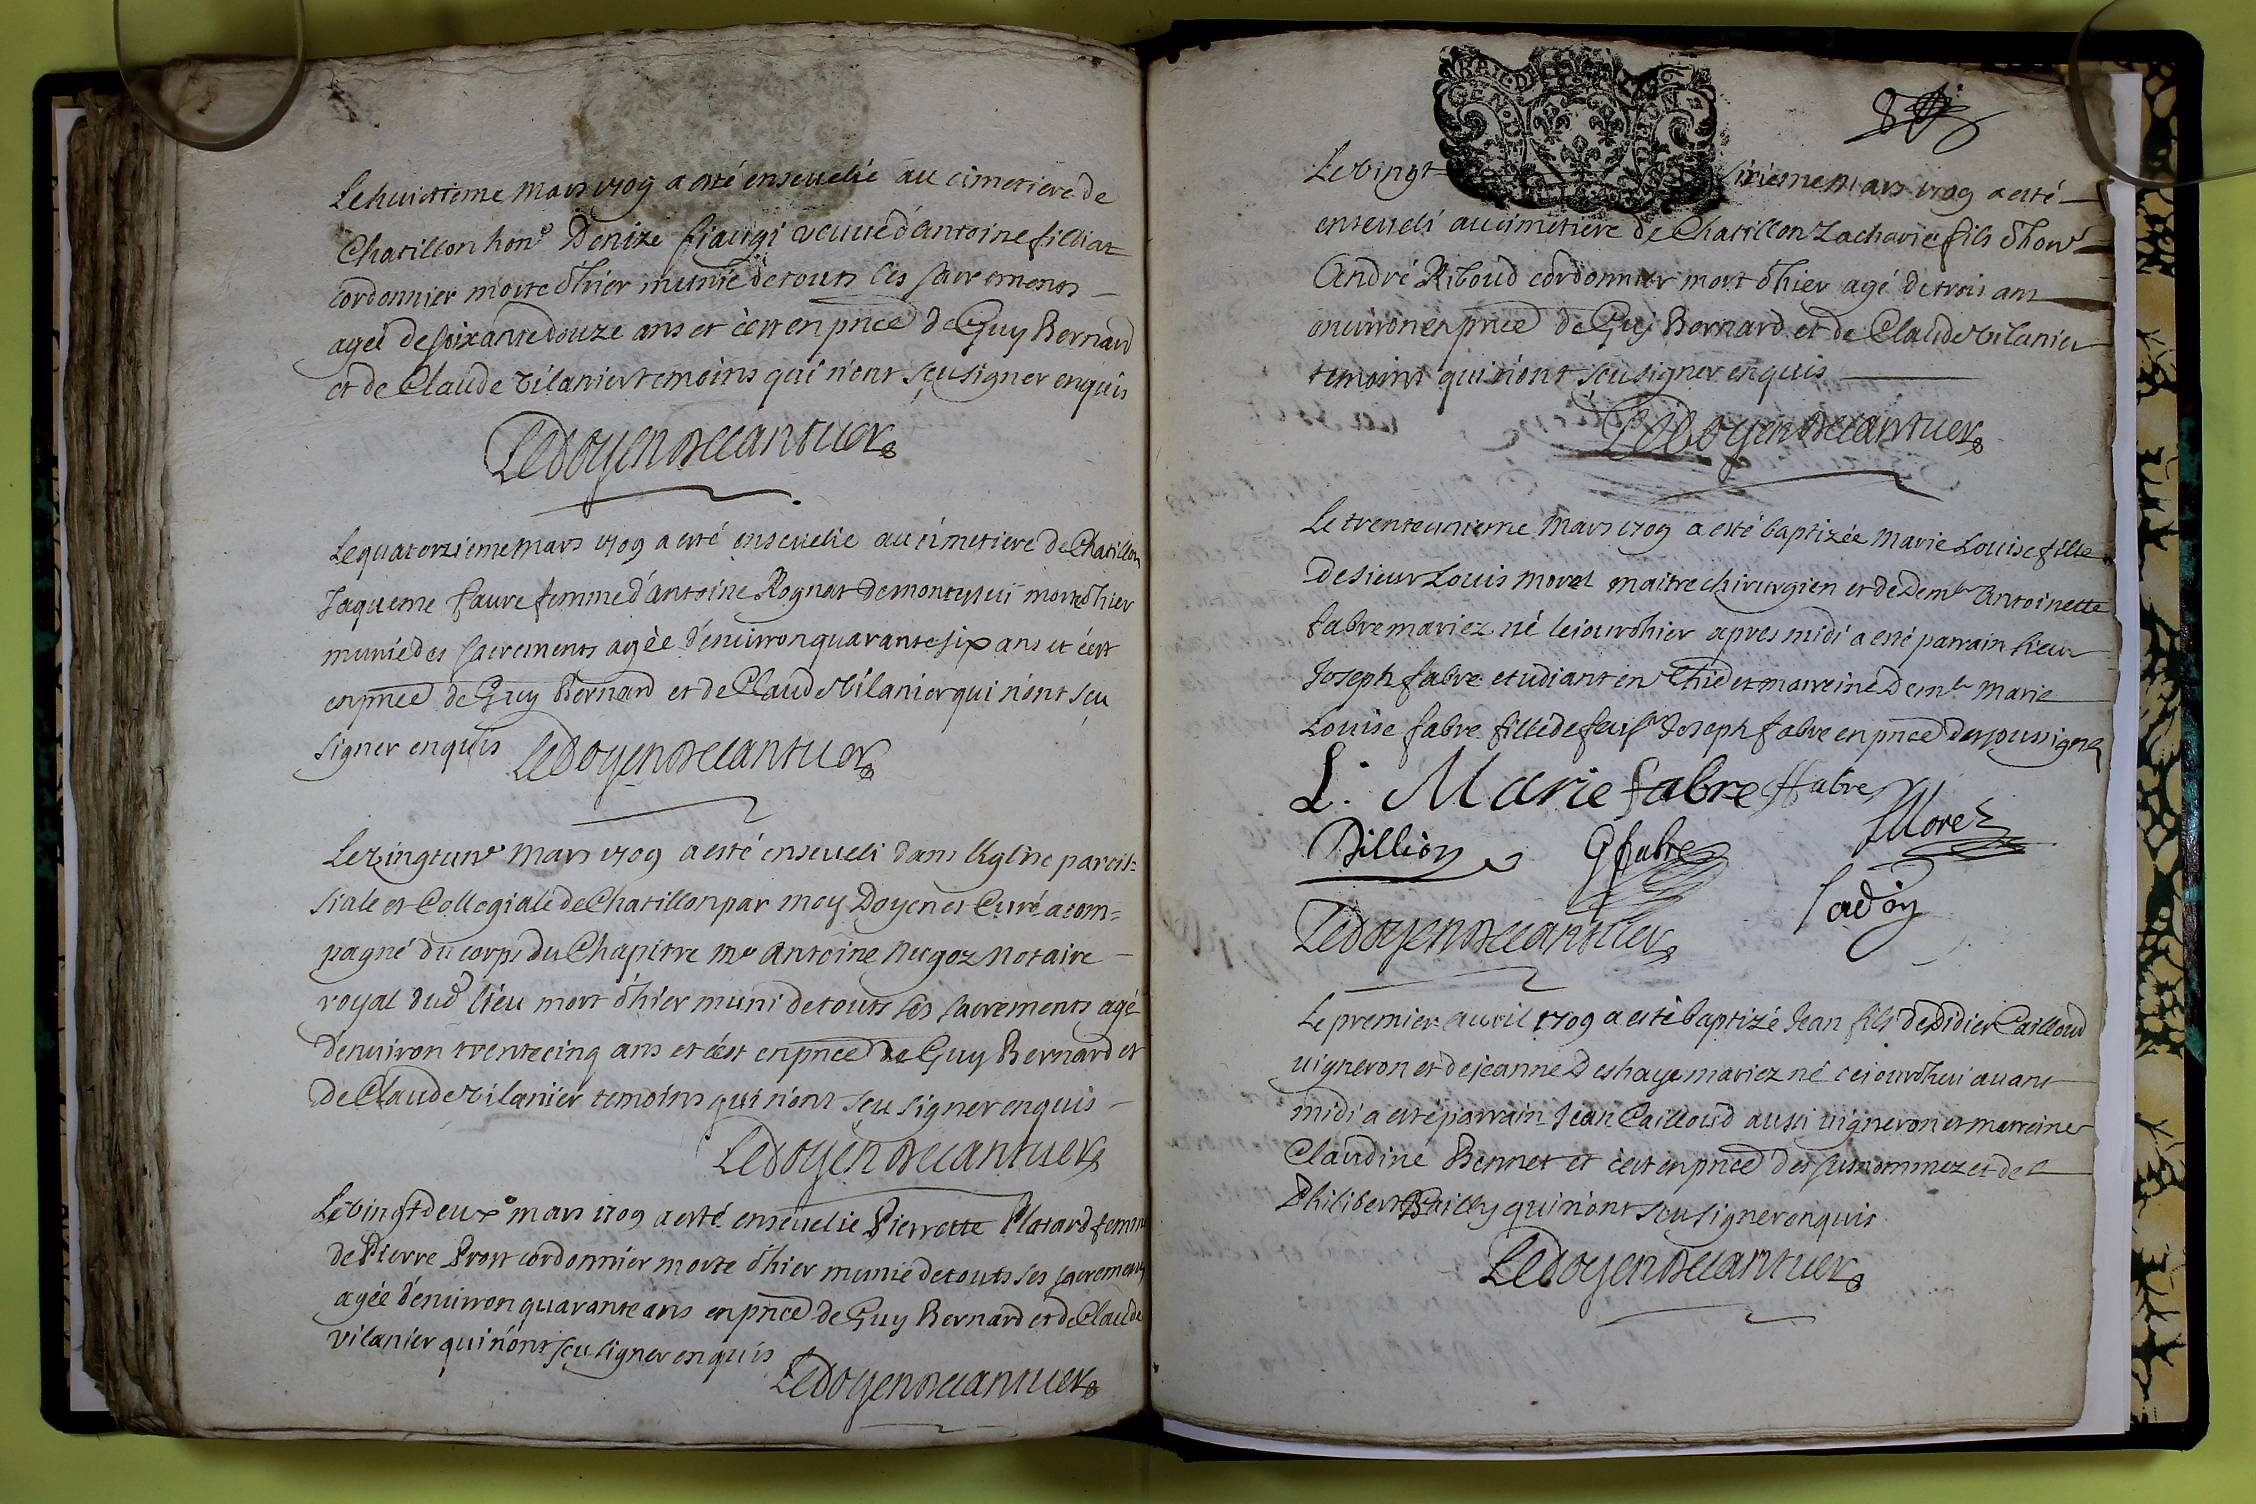 Le huictieme Mars 1709 a esté enseuelie au cimetiere de
Chatillon hon^e Denize fiaugi veuue d'Antoine filliat
cordonnier morte d'hier munie de touts les sacremens
agée de soixante douze ans et c'est en p̄nce de Guy Bernard
et de Claude Vilanier temoins qui n'ont sçu signer enquis
Ledoyen Decantuer
Le quatorzieme Mars 1709 a esté enseuelie au cimetiere de Chatillon
Jaqueme faure femme d'Antoine Rognat de morte d'hier
munie des sacrements agée d'enuiron quarante six ans et c'est
en p̄nce de Guy Bernard et de Claude Vilanier qui n'ont sçu
signer enquis Ledoyen Decantuer
Le vingtun^e Mars 1709 a esté enseueli dans l'Eglise parois=
siale et Collegiale de Chatillon par moy Doyen et Curé acom=
pagné du corps du Chapitre M^e Antoine Nugoz Notaire
royal dud lieu mort d'hier muni de touts ses sacrements agé
d'enuiron trente cinq ans et c'est en p̄nce de Guy Bernard et
de Claude Vilanier temoins qui n'ont sçu signer enquis
Ledoyen Decantuer
Le vingtdeux^e mars 1709 a esté enseuelie Pierrette Platard femme
de Pierre Prost cordonnier morte d'hier munie de touts ses sacrements
agée d'enuiron quarante ans en p̄nce de Guy Bernard et de Claude
Vilanier qui n'ont sçu signer enquis
Ledoyen Decantuer
GEN
Le vingt sixieme Mars 1709 a esté
enseueli au cimetiere de Chatillon Zacharie fils d'hon^e
André Riboud cordonnier mort d'hier agé de trois ans
enuiron en p̄nce de Guy Bernard et de Claude Vilanier
temoins qui n'ont sçu signer enquis
Ledoyen Decantuer
Le trenteunieme Mars 1709 a esté baptizée Marie Louise fille
de sieur Louis Morel maitre chirurgien et de Dem^lle Antoinette
fabre mariez né le jour d'hier apres midi a esté parrain sieur
Joseph fabre etudiant en et marreine Dem^lle Marie
Louise fabre fille de feu s^r Joseph fabre en p̄nce des soussignez
L. Marie fabre fabre
Dillion G fabre Morel
Ledoyen Decantuer
Le premier auril 1709 a esté baptizé Jean fils de Didier Cailloud
uigneron et de Jeanne Deshaye mariez né ce iourd'hui auant
midi a esté parrain Jean Cailloud aussi uigneron et marreine
Claudine Bennet et c'est en p̄nce des susnommez et de
Philibert Bailly qui n'ont sçu signer enquis
Ledoyen Decantuer